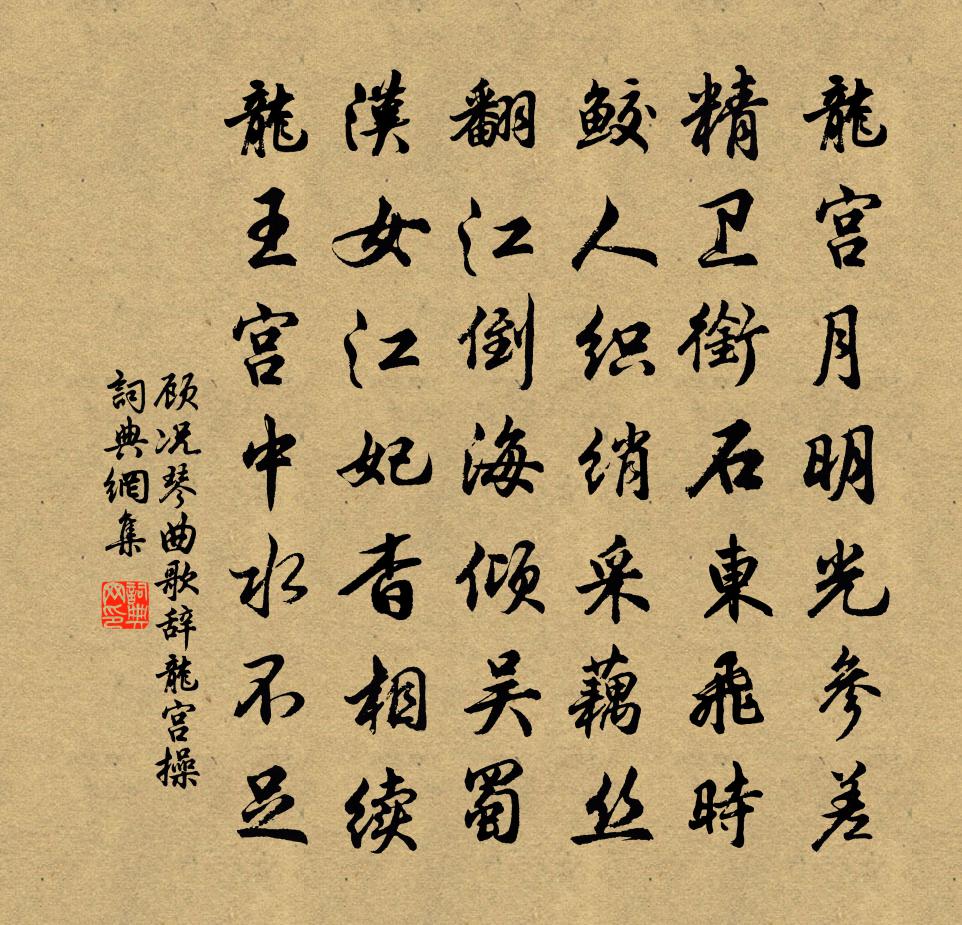 龍宫月明光參差
精卫銜石東飛時
鮫人织绡采藕丝
翻江倒海倾吴蜀
漢女江妃杳相续
龍王宫中水不足
顾况琴曲歌辞龍宫操
詞典網集
詞典网印